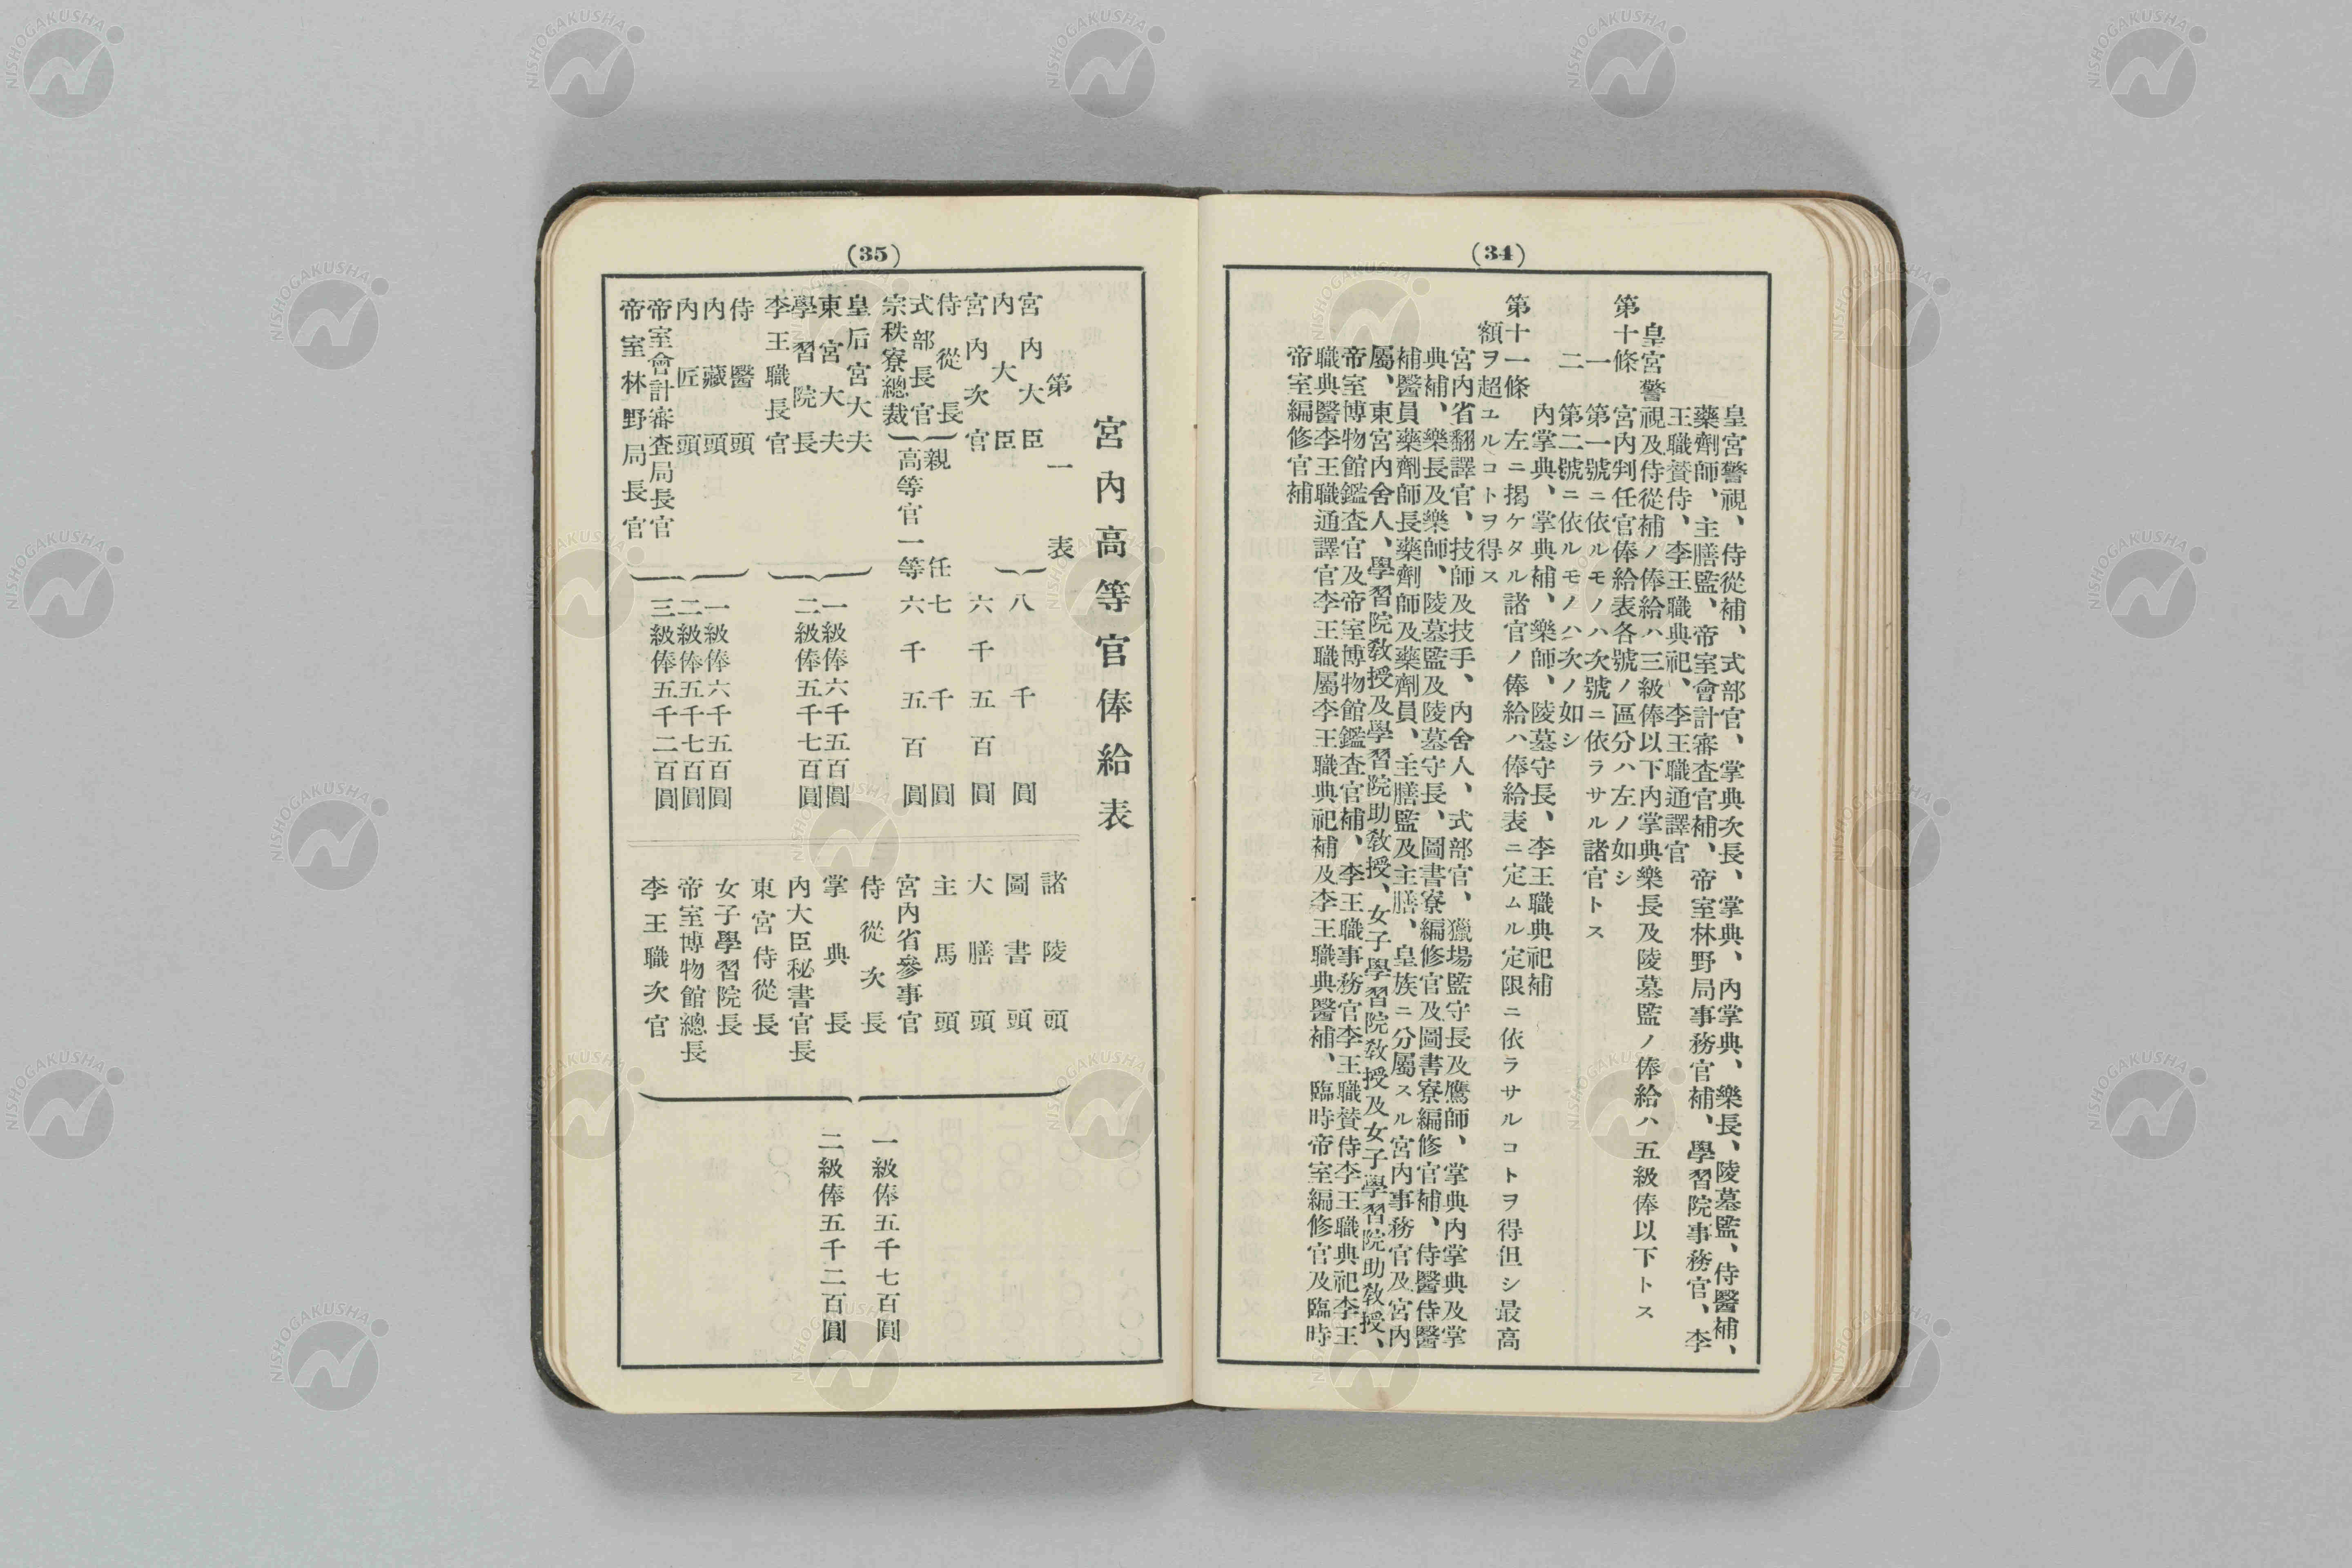 (34)
皇宮警視、侍從補、式部官、掌典次長、掌典、內掌典、樂長、陵墓監、侍醫補、
藥劑師、主膳監、帝室會計審査官補、帝室林野局事務官補、學習院事務官、李
王職贊侍、李王職典祀、李王職通譯官
皇宮警視及侍從補ノ俸給ハ三級俸以下內掌典樂長及陵墓監ノ俸給ハ五級俸以下トス
第十條 宮內判任官俸給表各號ノ區分ハ左ノ如シ
一 第一號ニ依ルモノハ次號ニ依ラサル諸官トス
二 第二號ニ依ルモノハ次ノ如シ
內掌典、掌典補、樂師、陵墓守長、李王職典祀補
第十一條 左ニ揭ケタル諸官ノ俸給ハ俸給表ニ定ムル定限ニ依ラサルコトヲ得但シ最高
額ヲ超ユルコトヲ得ス
宮內省翻譯官、技師及技手、內舍人、式部官、獵場監守長及鷹師、掌典內掌典及掌
典補、樂長及樂師、陵墓監及陵墓守長、圖書寮編修官及圖書寮編修官補、侍醫侍醫
補醫員藥劑師長藥劑師及藥劑員、主膳監及主膳、皇族ニ分屬スル宮內事務官及宮內
屬、東宮內舍人、學習院敎授及學習院助敎授、女子學習院敎授及女子學習院助敎授、
帝室博物館鑑査官及帝室博物館鑑査官補、李王職事務官李王職贊侍李王職典祀李王
職典醫李王職通譯官李王職屬李王職典祀補及李王職典醫補、臨時帝室編修官及臨時
帝室編修官補
(35)
宮內高等官俸給表
第一表
宮內大臣
內大臣
八千圓
宮內次官 六千五百圓
侍從長
式部長官
宗秩寮總裁
親任 七千圓
高等官一等 六千五百圓
皇后宮大夫
東宮大夫
學習院長
李王職長官
一級俸六千五百圓
二級俸五千七百圓
侍醫頭
內藏頭
內匠頭
帝室會計審査局長官
帝室林野局長官
一級俸六千五百圓
二級俸五千七百圓
三級俸五千二百圓
諸陵頭
圖書頭
大膳頭
主馬頭
宮內省參事官
侍從次長
掌典長
內大臣秘書官長
東宮侍從長
女子學習院長
帝室博物館總長
李王職次官
一級俸五千七百圓
二級俸五千二百圓
NISHOGAKUSHA